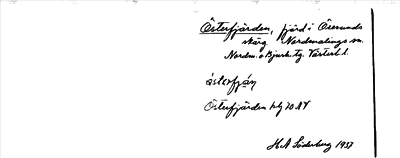 Österfjärden, fjärd i Öresunds
skärg Nordmalings sn.
Nordm. o Bjurh. tg. Västerb. l.
österfjän
Österfjärden blg 70 AV
H A Söderberg 1937